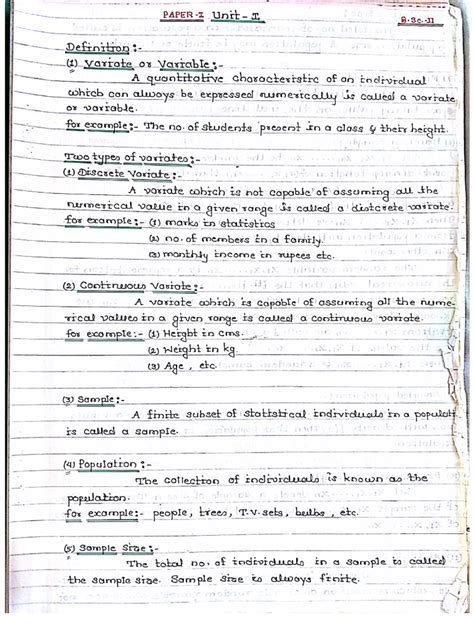 PAPER-I Unit-I B.Sc.-II
Definition :-
(1) Variate or Variable :-
A quantitative characteristic of an individual
which can always be expressed numerically is called a variate
or variable.
for example :- The no. of students present in a class & their height.
Two types of variates :-
(1) Discrete Variate :-
A variate which is not capable of assuming all the
numerical value in a given range is called a distcrete variate.
for example :- (1) marks in statistics
(2) no. of members in a family.
(3) monthly income in rupees etc.
(2) Continuous Variate :-
A variate which is capable of assuming all the nume-
rical values in a given range is called a continuous variate.
for example :- (1) Height in cms.
(2) Weight in kg.
(3) Age, etc.
(3) Sample :-
A finite subset of statistical individuals in a populati
is called a sample.
(4) Population :-
The collection of individuals is known as the
population.
for example :- people, trees, T.V. sets, bulbs, etc.
(5) Sample Size :-
The total no. of individuals in a sample is called
the sample size. Sample size is always finite.